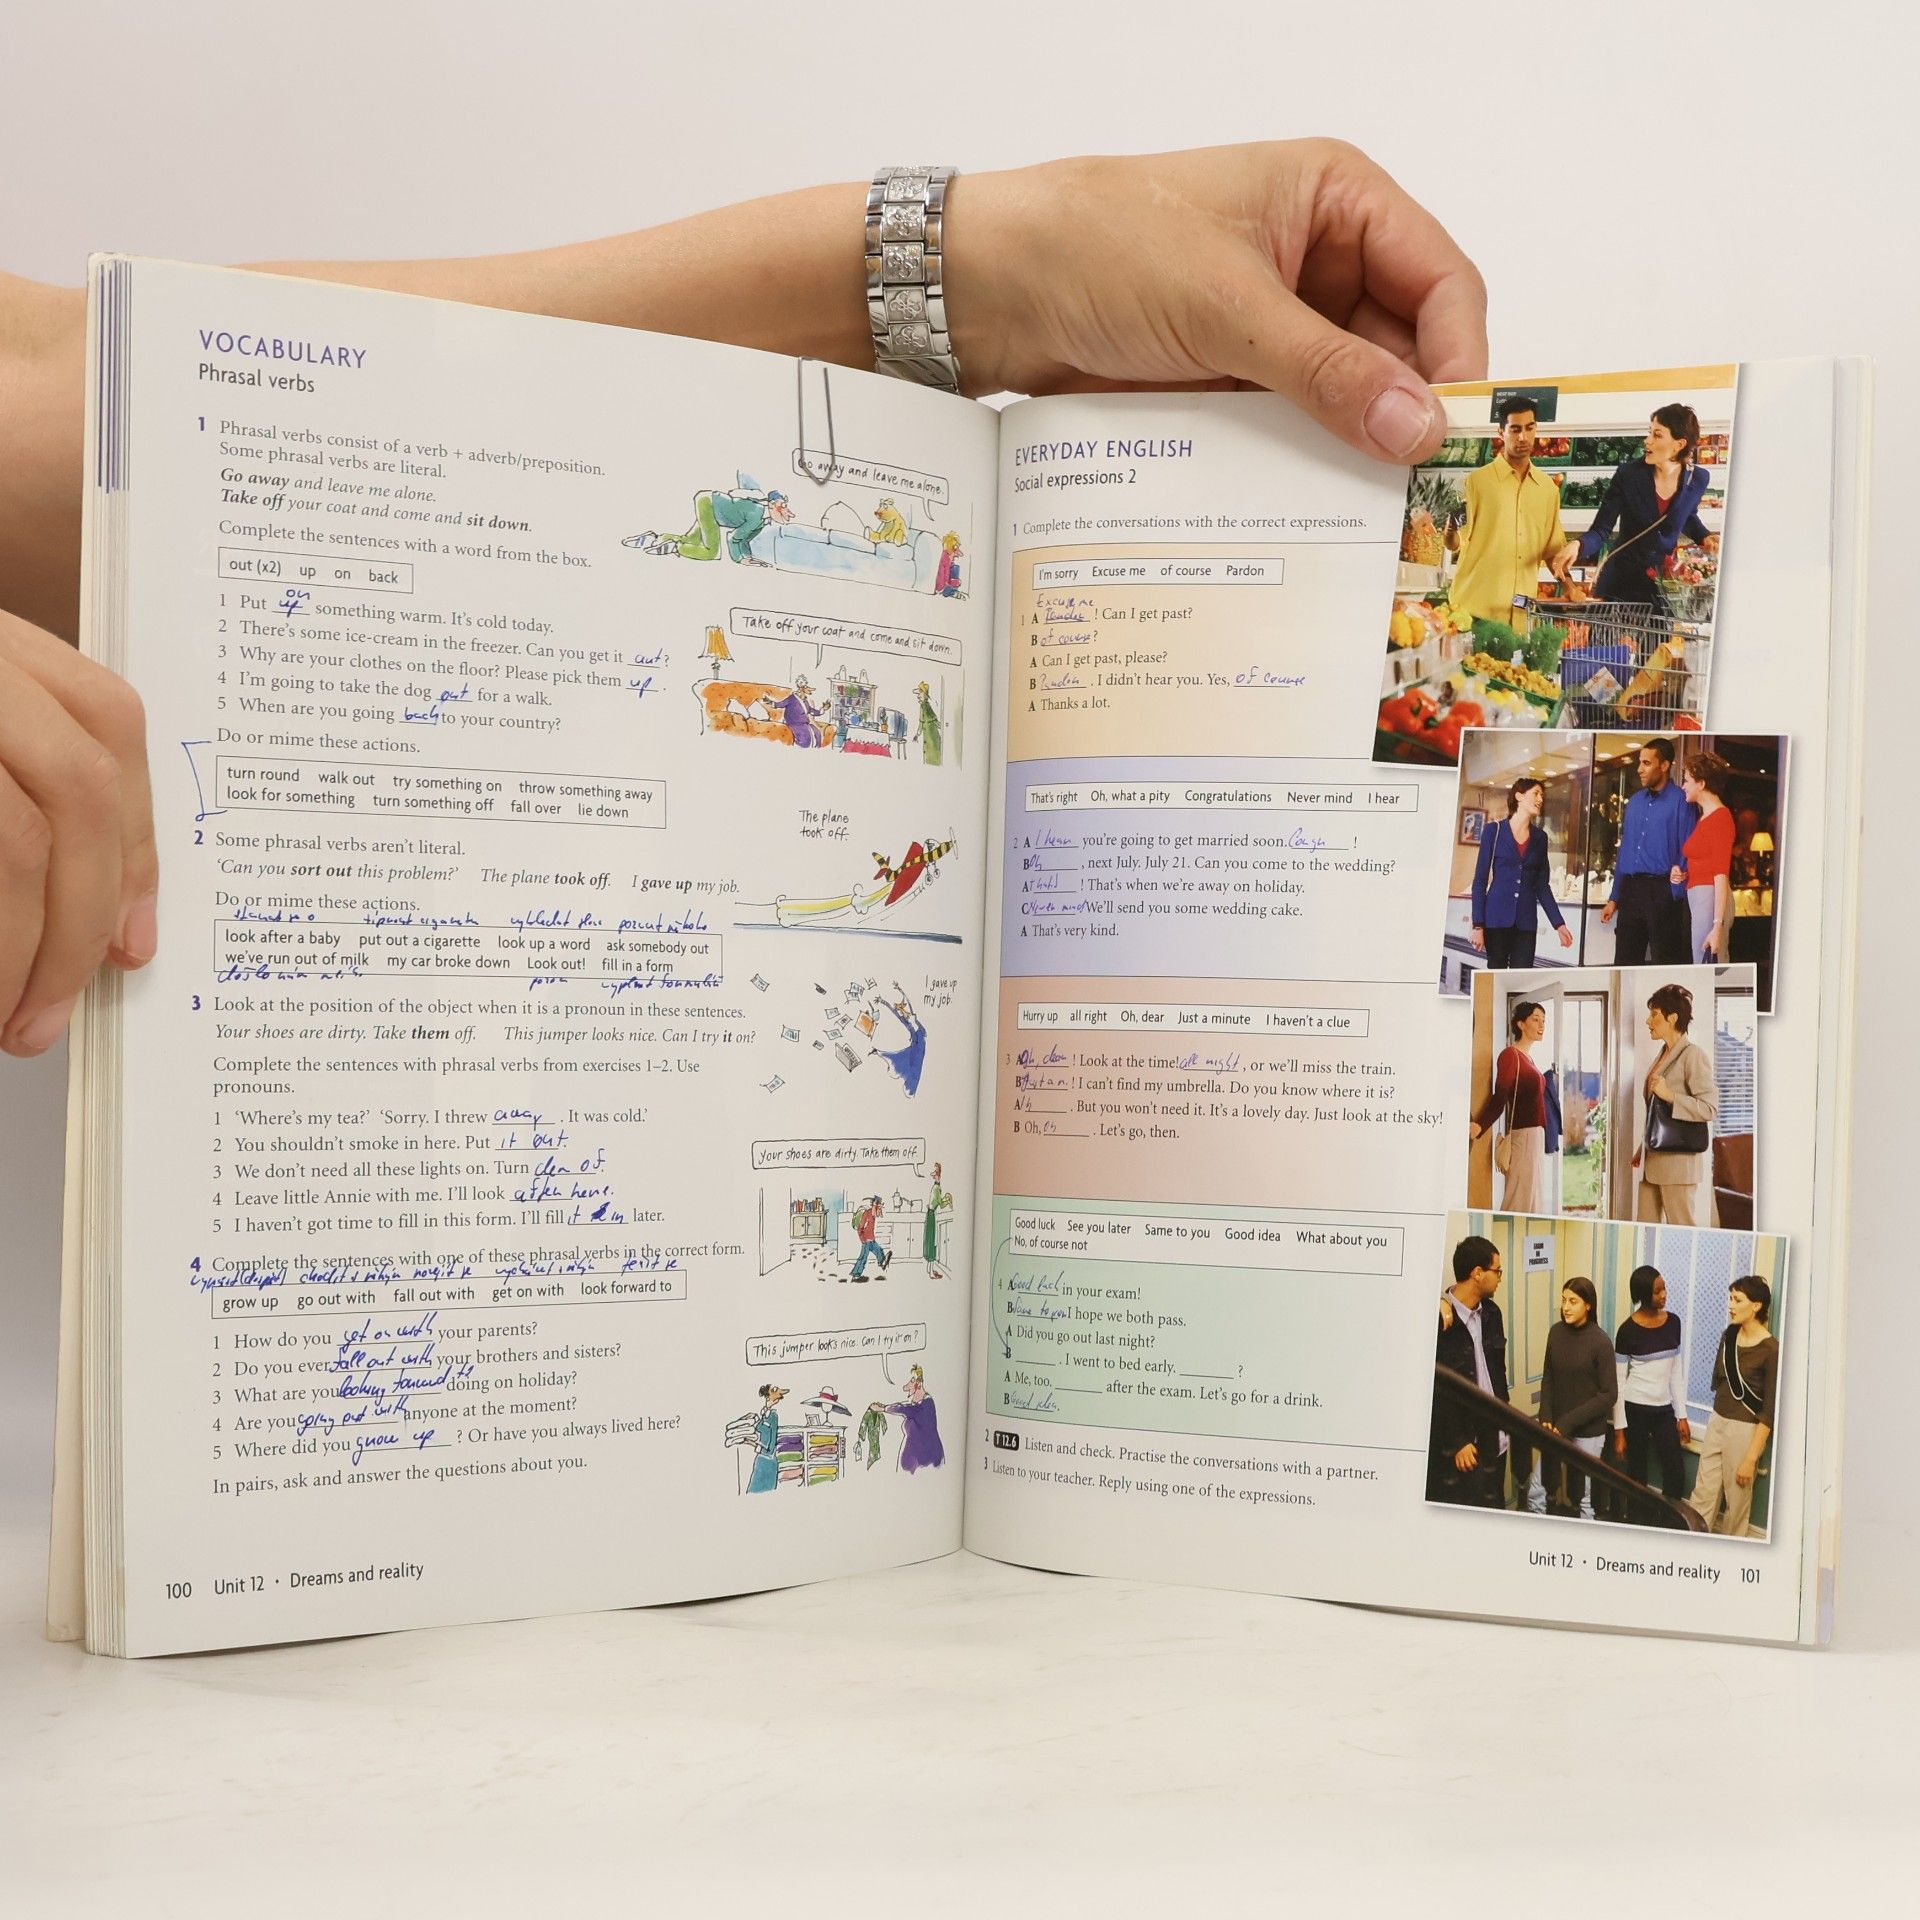 VOCABULARY
Phrasal verbs
1 Phrasal verbs consist of a verb + adverb/preposition.
Some phrasal verbs are literal.
Go away and leave me alone.
Take off your coat and come and sit down.
Complete the sentences with a word from the box.
out (x2) up on back
on
1 Put up something warm. It's cold today.
2 There's some ice-cream in the freezer. Can you get it out?
3 Why are your clothes on the floor? Please pick them up.
4 I'm going to take the dog out for a walk.
5 When are you going back to your country?
Do or mime these actions.
turn round walk out try something on throw something away
look for something turn something off fall over lie down
2 Some phrasal verbs aren't literal.
'Can you sort out this problem?' The plane took off. I gave up my job.
Do or mime these actions.
look after a baby put out a cigarette look up a word ask somebody out
we've run out of milk my car broke down Look out! fill in a form
3 Look at the position of the object when it is a pronoun in these sentences.
Your shoes are dirty. Take them off. This jumper looks nice. Can I try it on?
Complete the sentences with phrasal verbs from exercises 1–2. Use
pronouns.
1 'Where's my tea?' 'Sorry. I threw away. It was cold.'
2 You shouldn't smoke in here. Put it out.
3 We don't need all these lights on. Turn
4 Leave little Annie with me. I'll look
5 I haven't got time to fill in this form. I'll fill it in later.
4 Complete the sentences with one of these phrasal verbs in the correct form.
grow up go out with fall out with get on with look forward to
1 How do you get on with your parents?
2 Do you ever fall out with your brothers and sisters?
3 What are you looking forward to doing on holiday?
4 Are you going out with anyone at the moment?
5 Where did you grow up? Or have you always lived here?
In pairs, ask and answer the questions about you.
100 Unit 12 • Dreams and reality
Go away and leave me alone.
Take off your coat and come and sit down.
The plane
took off.
I gave up
my job.
Your shoes are dirty. Take them off.
This jumper looks nice. Can I try it on?
EVERYDAY ENGLISH
Social expressions 2
1 Complete the conversations with the correct expressions.
I'm sorry Excuse me of course Pardon
Excuse me
1 A Pardon! Can I get past?
B of course?
A Can I get past, please?
B Pardon. I didn't hear you. Yes, of course
A Thanks a lot.
That's right Oh, what a pity Congratulations Never mind I hear
2 A I hear you're going to get married soon. !
B Oh, next July. July 21. Can you come to the wedding?
A ! That's when we're away on holiday.
C Never mind We'll send you some wedding cake.
A That's very kind.
Hurry up all right Oh, dear Just a minute I haven't a clue
3 A Oh, dear! Look at the time! all right, or we'll miss the train.
B ! I can't find my umbrella. Do you know where it is?
A . But you won't need it. It's a lovely day. Just look at the sky!
B Oh, . Let's go, then.
Good luck See you later Same to you Good idea What about you
No, of course not
4 A Good luck in your exam!
B Same to you I hope we both pass.
A Did you go out last night?
B . I went to bed early. ?
A Me, too. after the exam. Let's go for a drink.
B Good idea.
2 T 12.6 Listen and check. Practise the conversations with a partner.
3 Listen to your teacher. Reply using one of the expressions.
Unit 12 • Dreams and reality 101